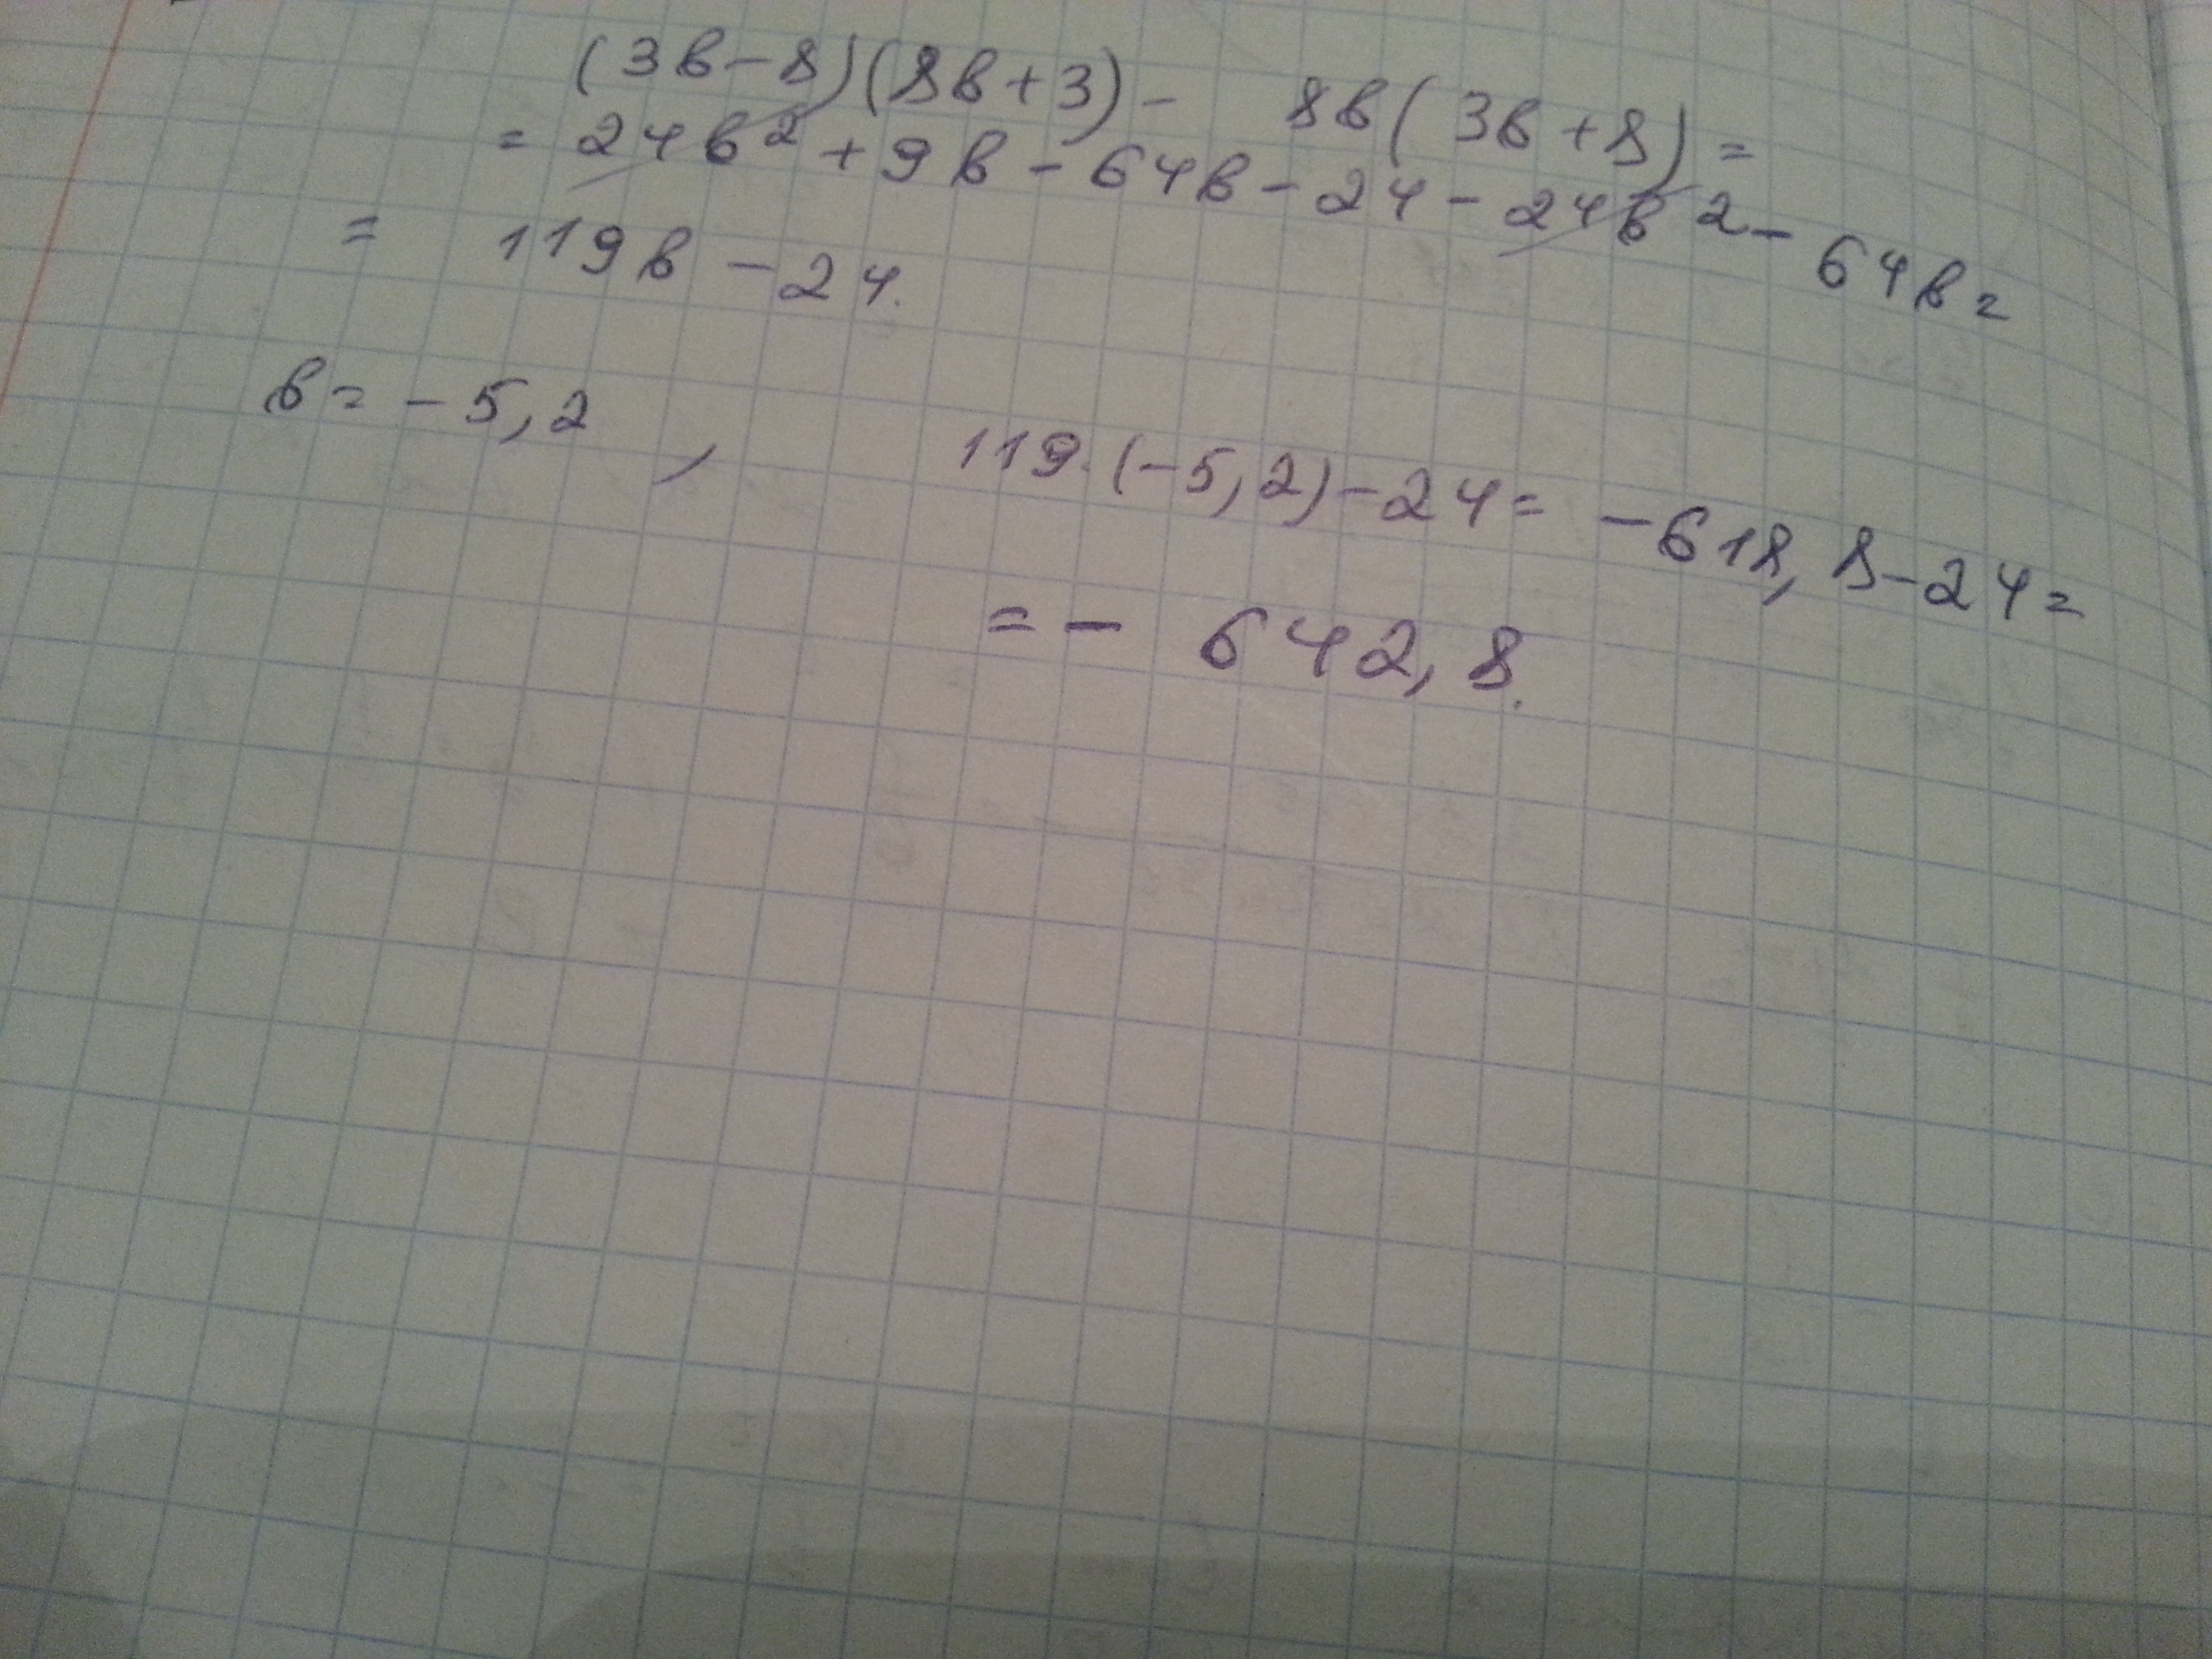 (3в-8)(8в+3)- 8в(3в+8)=
= 24в²+9в-64в-24-24в²-64в=
= 119в-24.
в=-5,2 , 119·(-5,2)-24= -618,8-24=
=- 642,8.